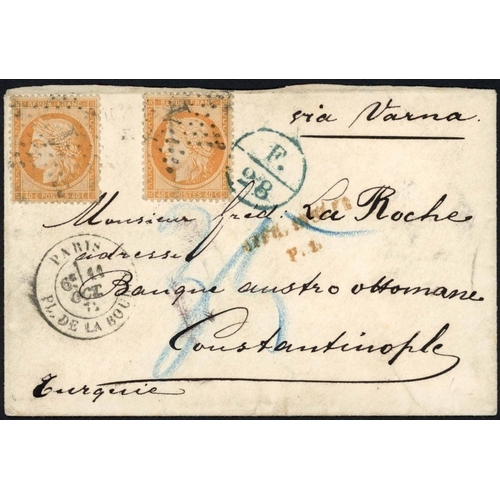 via Varna
F.
28
Monsieur fred. La Roche
adresse
P. 4.
Banque austro ottomane
Constantinople
Turquie
PARIS
PL. DE LA BOU
6E 11
OCT.